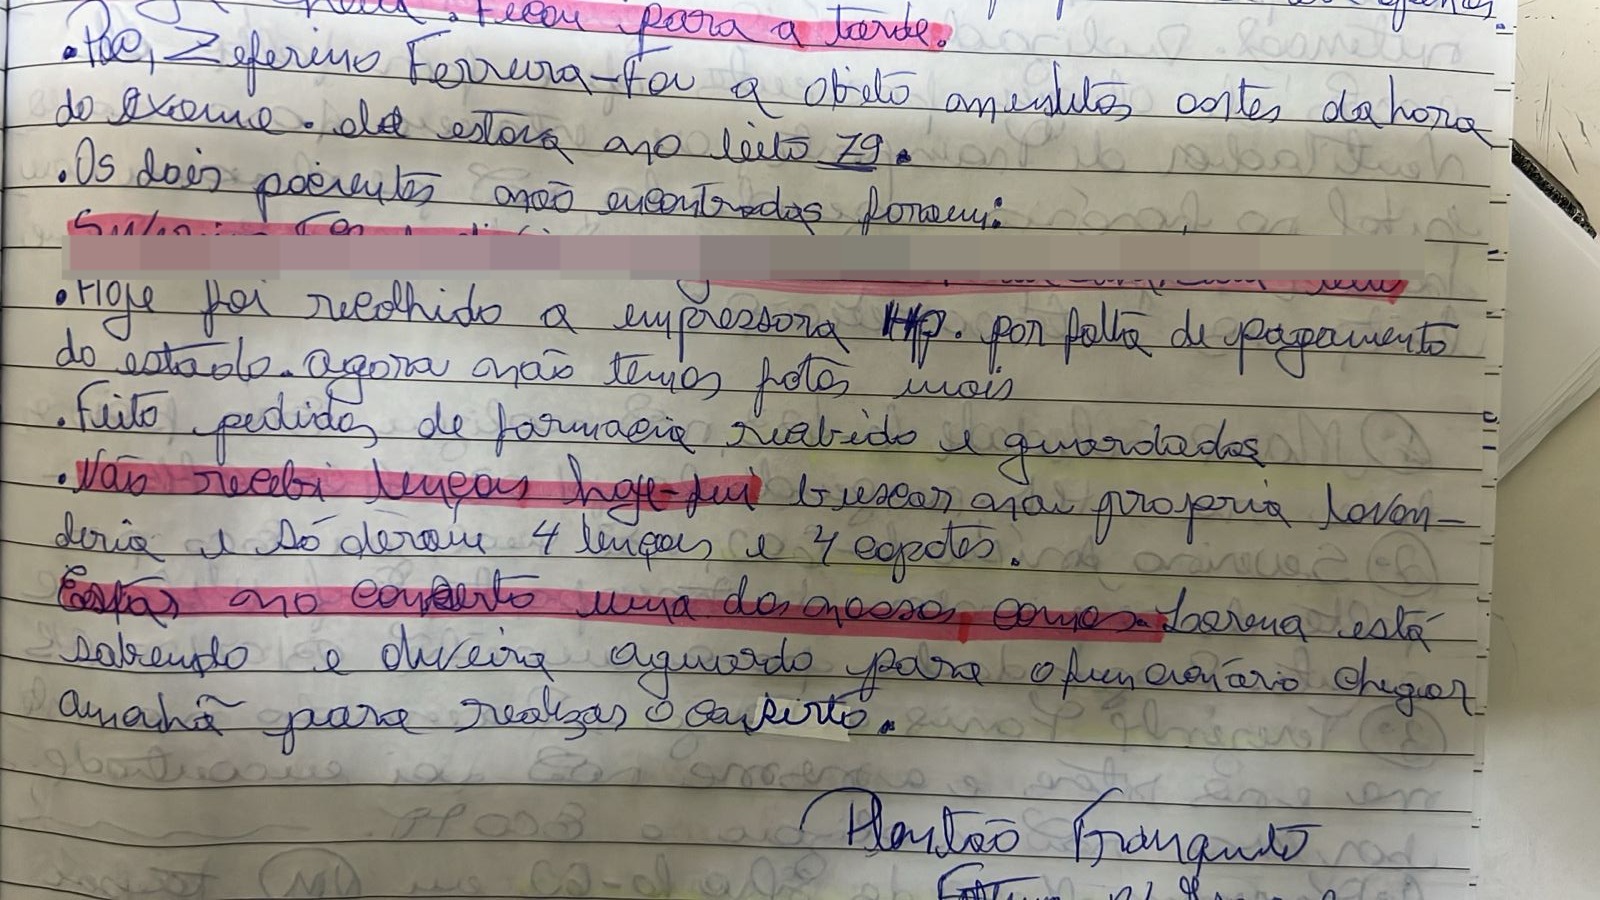 Ficou para a tarde.
.Pac, Zeferino Ferreira-Foi a obito minutos antes da hora
do exame. ele estava no leito 19.
.Os dois pacientes não encontrados foram:
.Hoje foi recolhido a empressora HP. por falta de pagamento
do estado. agora não temos fotos mais
.Feito pedidos de farmacia recebido e guardados
.Não recebi lençois hoje-fui buscar na propria lavan-
deria e só deram 4 lençois e 4 capotes.
no conserto uma das nossas camas. Lorena está
sabendo e oliveira aguardo para o funcionário chegar
amanhã para realizar o conserto.
Plantão Tranquilo